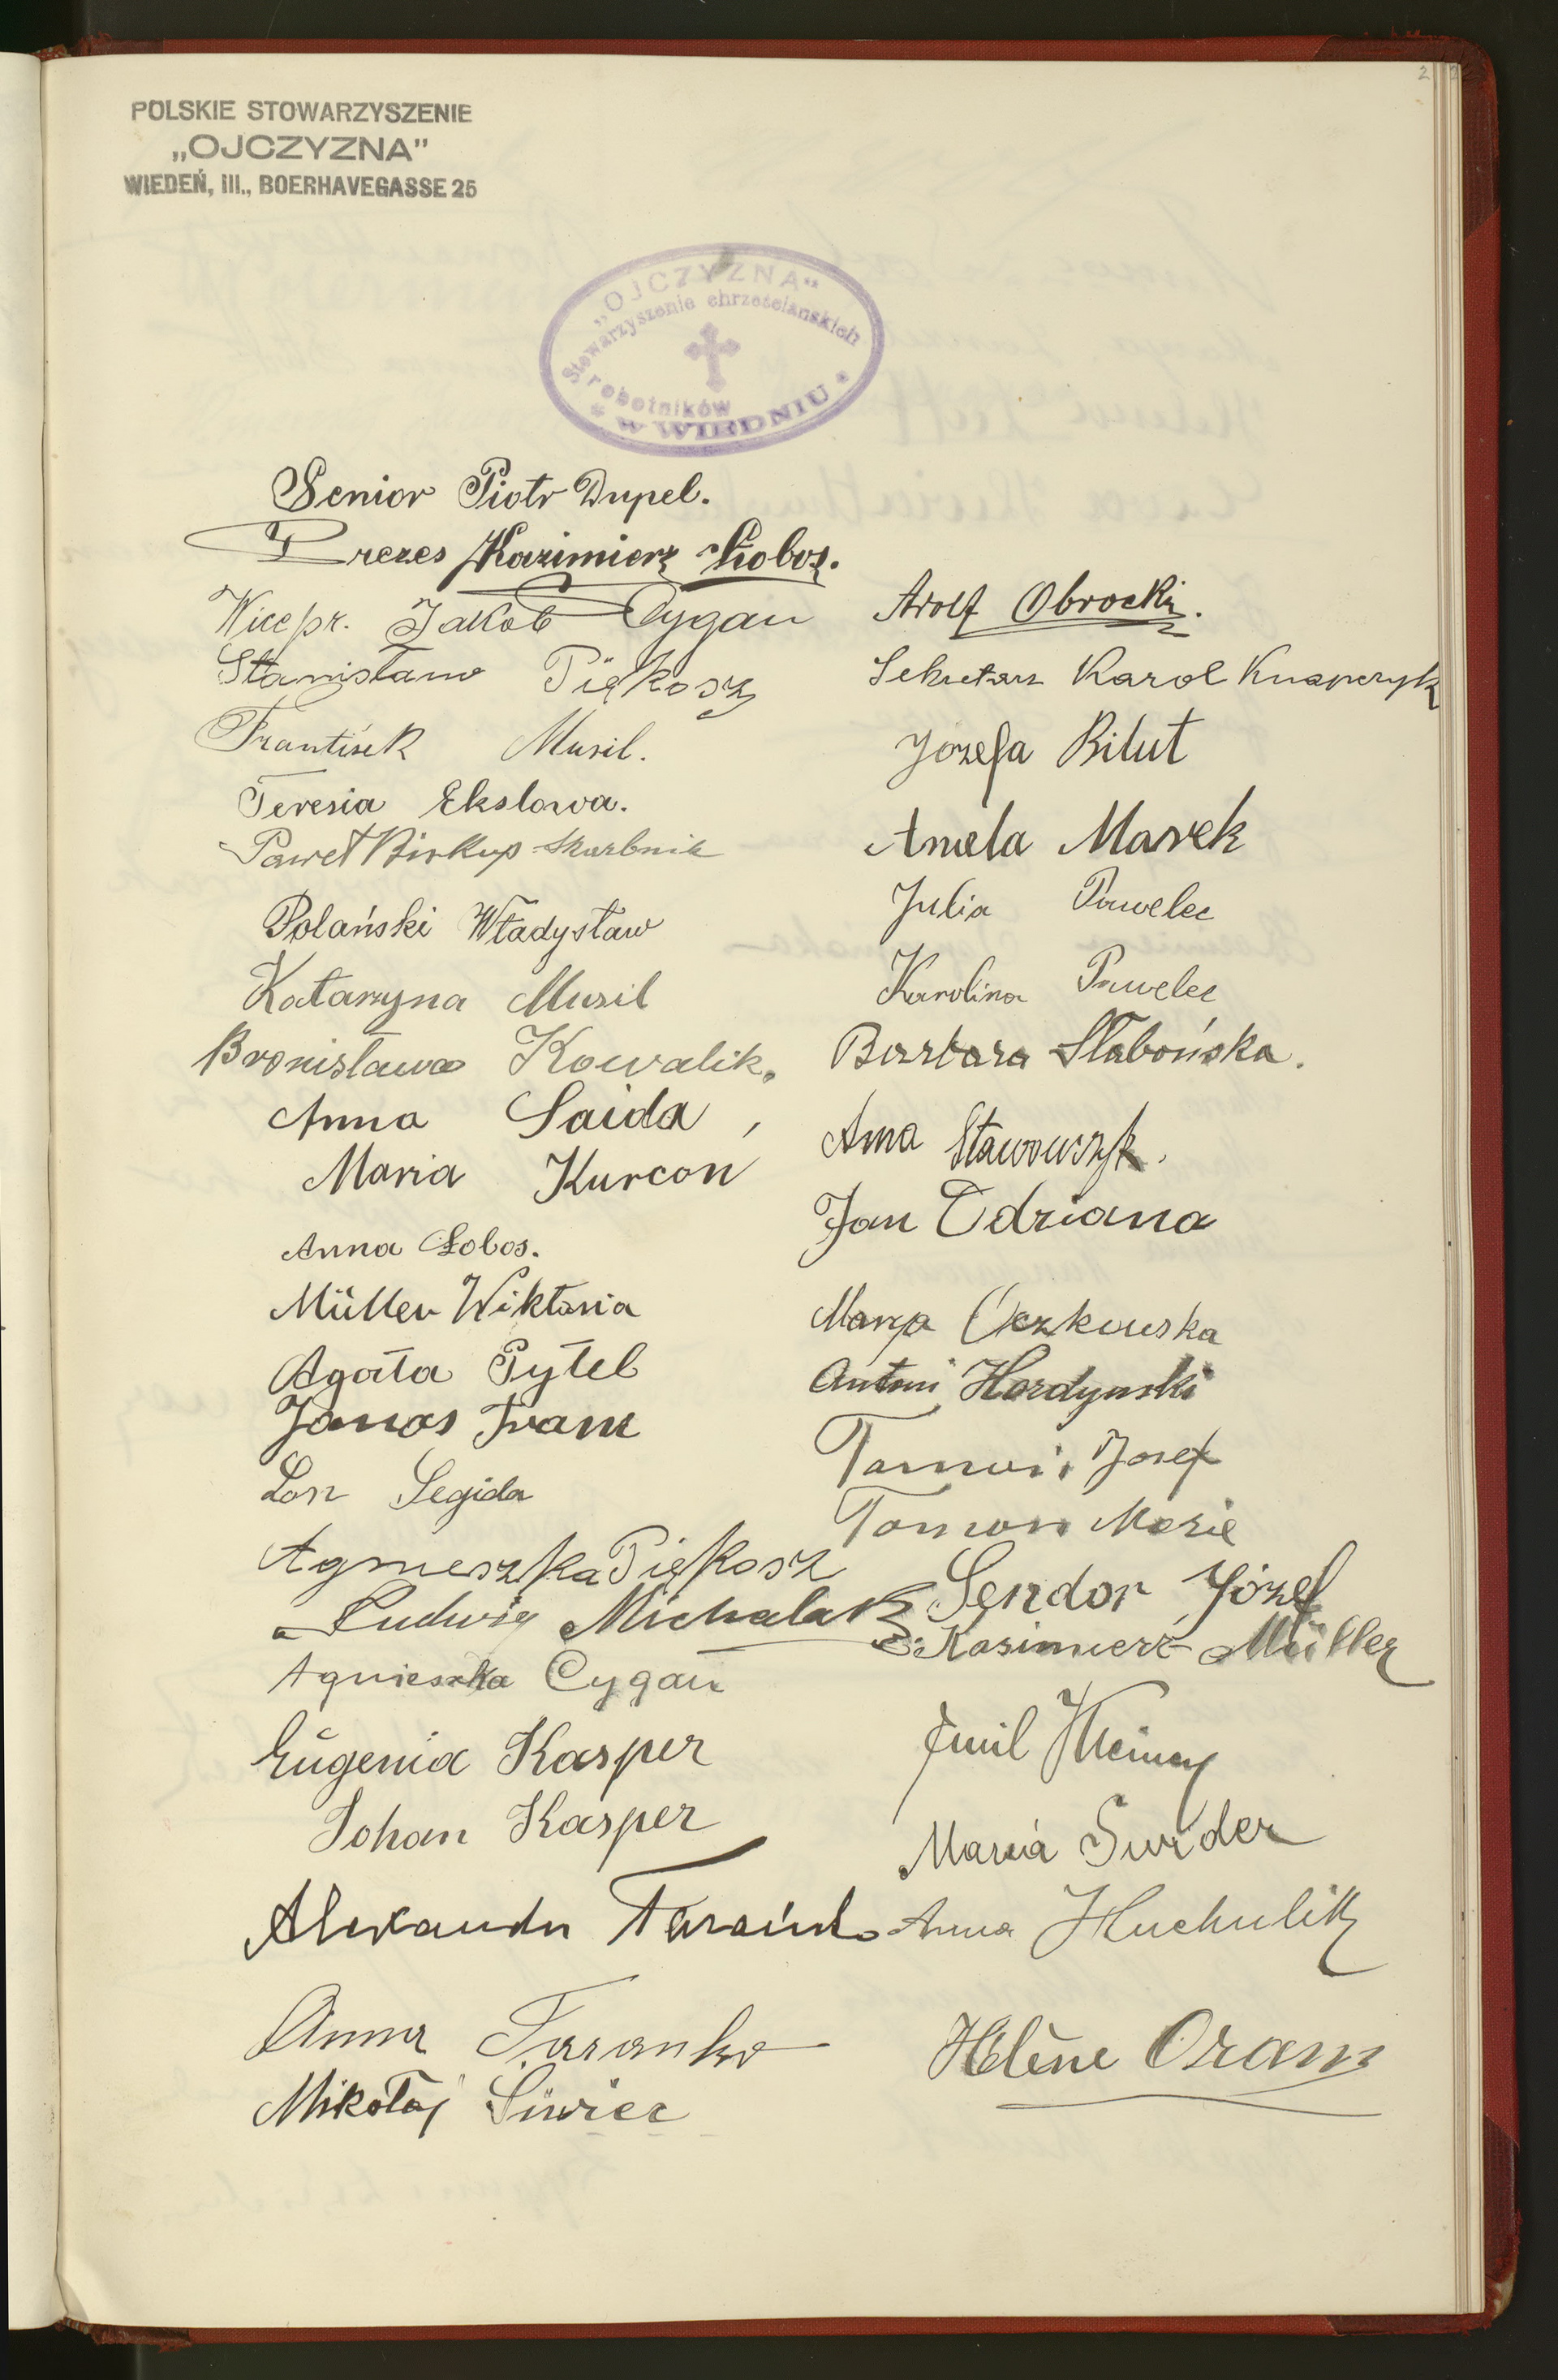 2
POLSKIE STOWARZYSZENIE
„OJCZYZNA”
WIEDEŃ, III., BOERHAVEGASSE 25
„OJCZYZNA”
Stowarzyszenie chrześcianskich
robotników
* W WIEDNIU *
Senior Piotr Dupel.
Prezes Kazimierz Łobos.
Wicepr. Jakób Cygan
Stanisław Piękosz
Frantisek Musil.
Teresia Ekslowa.
Paweł Biskup Skarbnik
Polański Władysław
Katarzyna Musil
Bronisława Kowalik.
Anna Saida,
Maria Kurcon
Anna Łobos.
Müller Wiktoria
Agata Pytel
Janas Franc
Segida
Agnieszka Piękosz
Ludwig Michalak
Agnieszka Cygan
Eugenia Kasper
Johan Kasper
Alexander
Anna Taranko
Mikołaj Siwiec
Adolf Obrocki.
Sekretarz Karol Knapczyk
Józefa Bilut
Aniela Marek
Julia Pawelec
Karolina Pawelec
Barbara Słabońska.
Anna Stawowczyk.
Jan Odriana
Marya
Antoni Hordynski
Josef
Marie
Sendor Józef
Kasimierz Müller
Emil
Maria Surder
Anna Huchulik
Hélène Oram